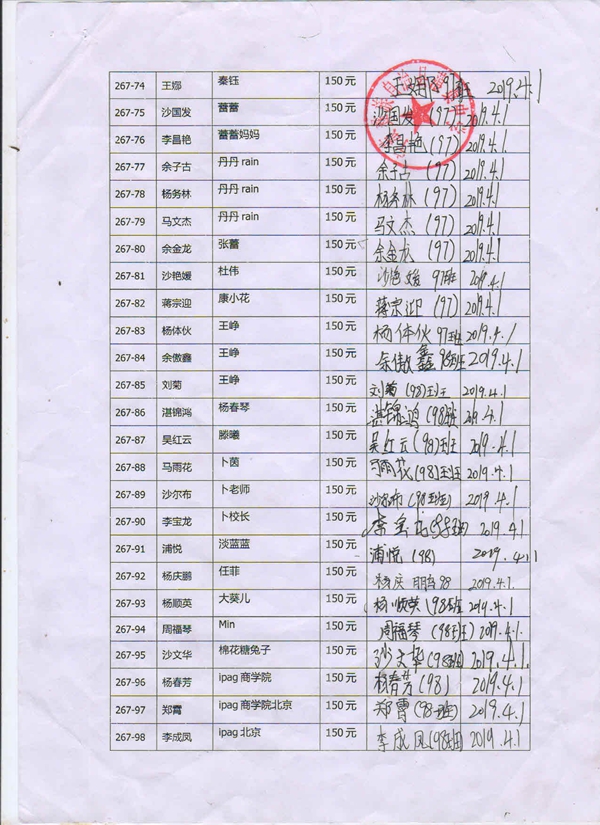 267-74 王娜 秦钰 150元 王娜 97班 2019.4.1
267-75 沙国发 蔷蔷 150元 沙国发 (97) 2019.4.1
267-76 李昌艳 蔷蔷妈妈 150元 李昌艳 (97) 2019.4.1
267-77 余子古 丹丹 rain 150元 余子古 (97) 2019.4.1
267-78 杨务林 丹丹 rain 150元 杨务林 (97) 2019.4.1
267-79 马文杰 丹丹 rain 150元 马文杰 (97) 2019.4.1
267-80 余金龙 张蕾 150元 余金龙 (97) 2019.4.1
267-81 沙艳媛 杜伟 150元 沙艳媛 97班 2019.4.1
267-82 蒋宗迎 康小花 150元 蒋宗迎 (97) 2019.4.1
267-83 杨体伙 王峥 150元 杨体伙 97班 2019.4.1
267-84 余傲鑫 王峥 150元 余傲鑫 98班 2019.4.1
267-85 刘菊 王峥 150元 刘菊 (98)班 2019.4.1
267-86 湛锦鸿 杨春琴 150元 湛锦鸿 (98班) 2019.4.1
267-87 吴红云 滕曦 150元 吴红云 (98)班 2019.4.1
267-88 马雨花 卜茵 150元 马雨花 (98)班 2019.4.1
267-89 沙尔布 卜老师 150元 沙尔布 (98班) 2019.4.1
267-90 李宝龙 卜校长 150元 李宝龙 2019.4.1
267-91 浦悦 淡蓝蓝 150元 浦悦 (98) 2019.4.1
267-92 杨庆鹏 任菲 150元 杨庆鹏 98 2019.4.1.
267-93 杨顺英 大葵儿 150元 杨顺英 (98班 2019.4.1
267-94 周福琴 Min 150元 周福琴 (98班) 2019.4.1.
267-95 沙文华 棉花糖兔子 150元 沙文华 (98班) 2019.4.1.
267-96 杨春芳 ipag 商学院 150元 杨春芳 (98) 2019.4.1
267-97 郑霄 ipag 商学院北京 150元 郑霄 (98班) 2019.4.1
267-98 李成凤 ipag 北京 150元 李成凤 (98班) 2019.4.1